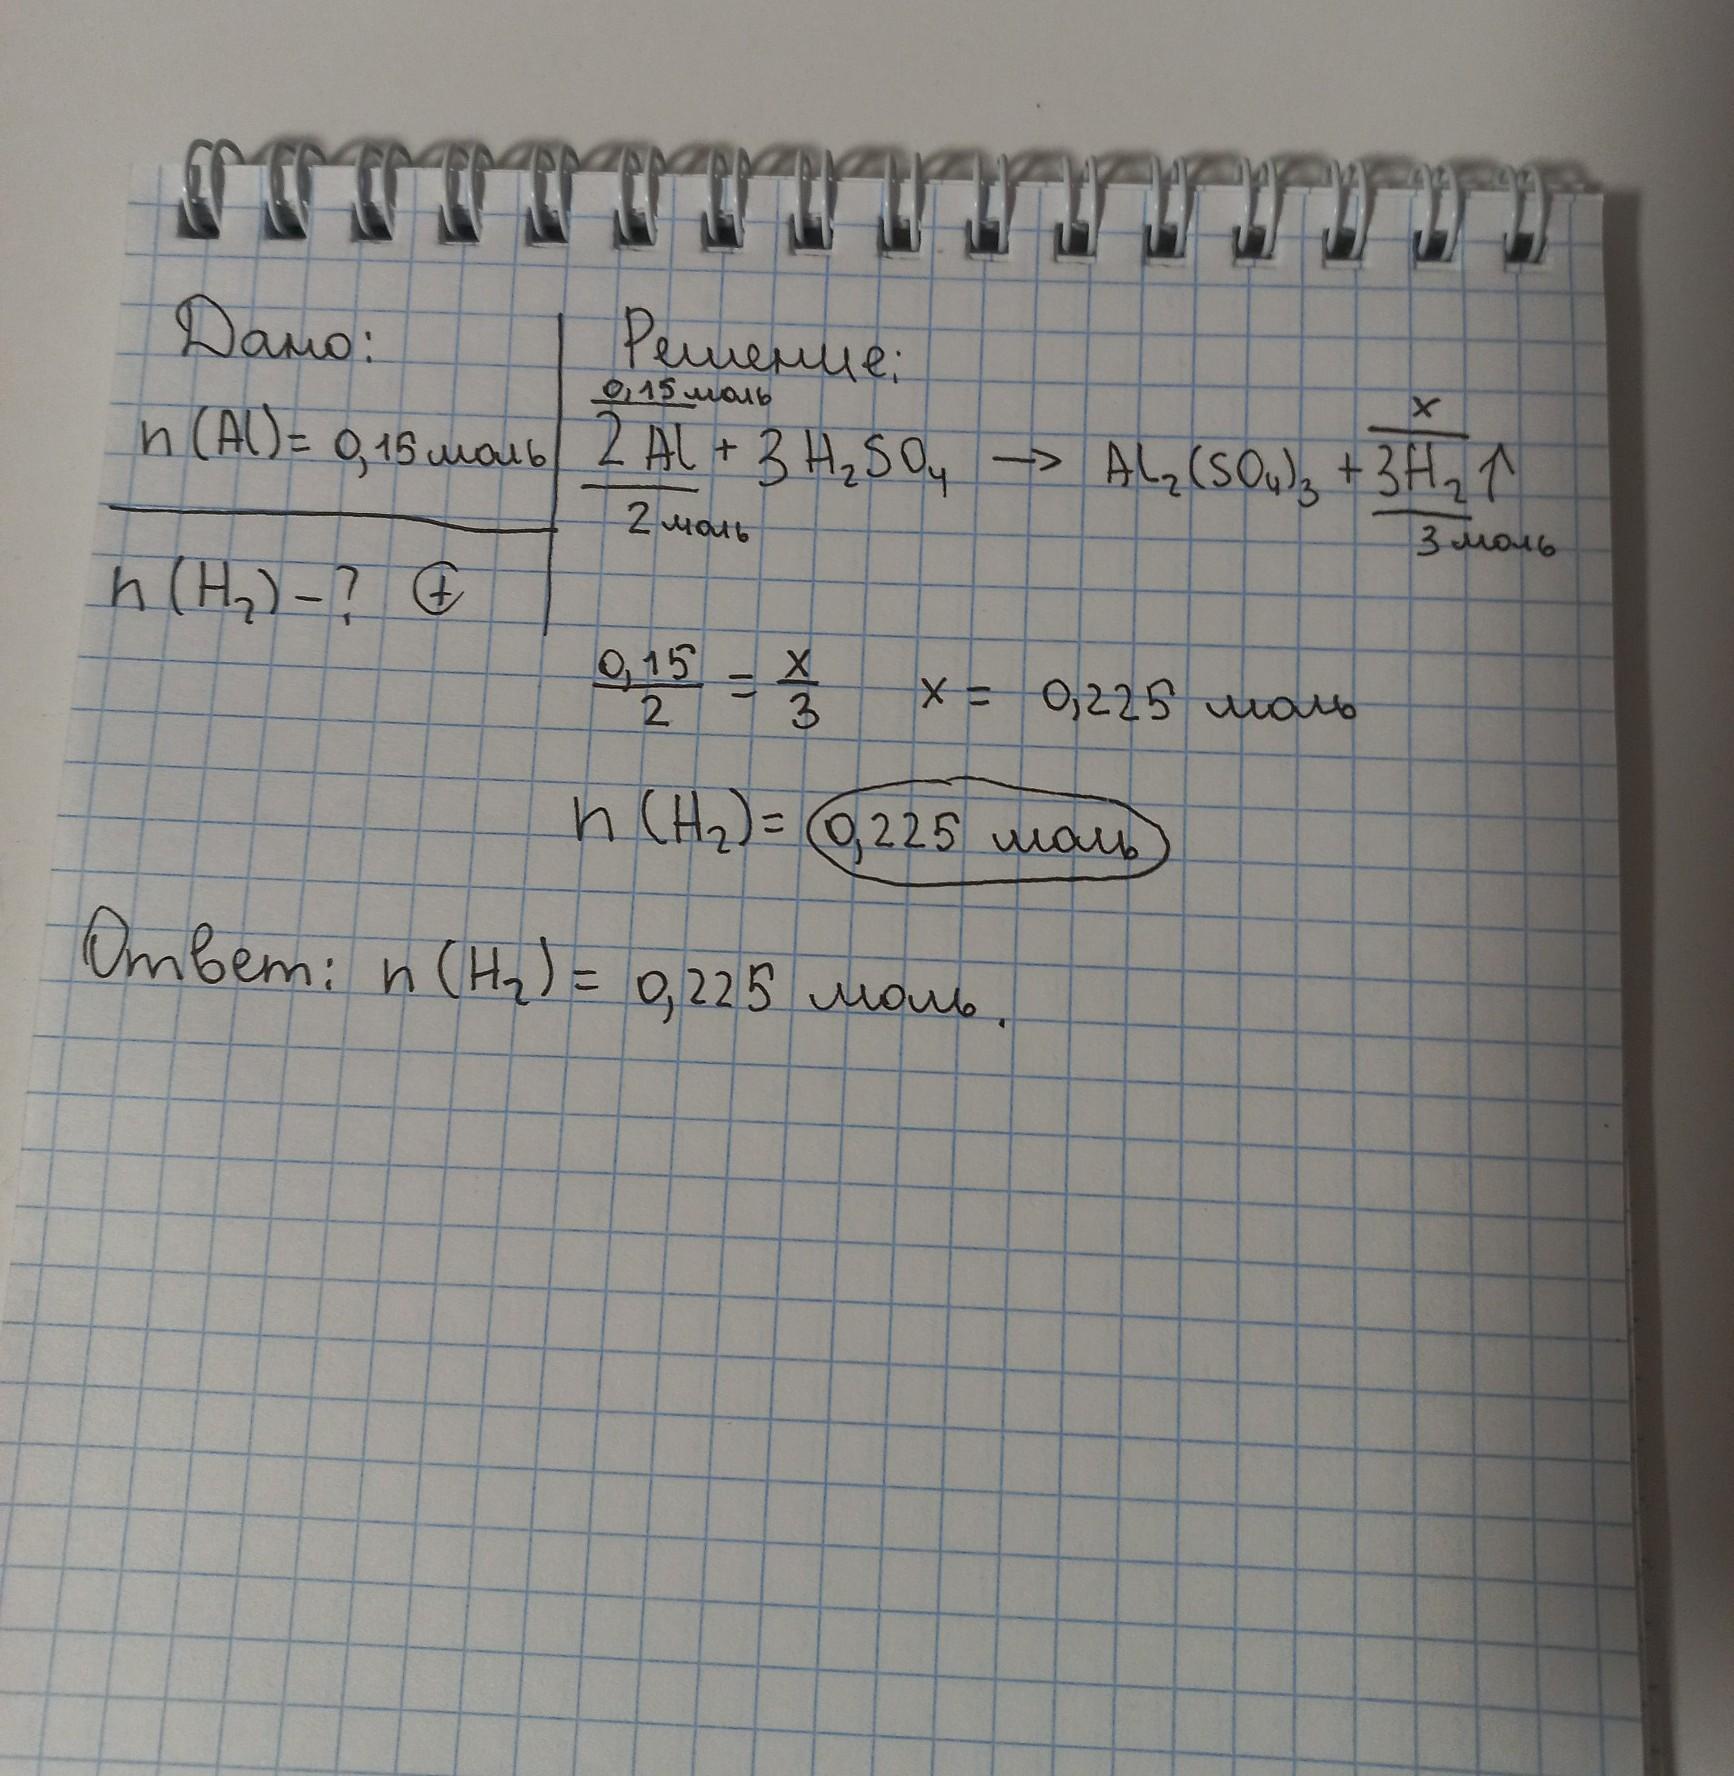 Дано:
n(Al)= 0,15 моль
n(H₂)-? +
Решение:
0,15 моль x
2Al + 3H₂SO₄ → Al₂(SO₄)₃ + 3H₂↑
2 моль 3 моль
0,15/2 = x/3 x = 0,225 моль
n(H₂)= 0,225 моль
Ответ: n(H₂)= 0,225 моль.